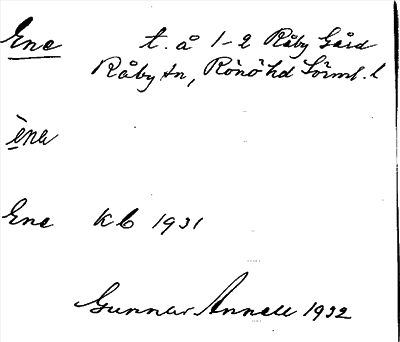 Ene t. å 1-2 Råby Gård
Råby sn, Rönö hd Södml. l
ènu
Ene Kb 1931
Gunnar Annell 1932